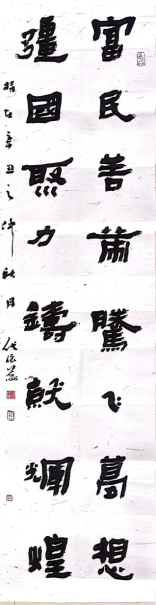 富民善策騰飞夢想
彊國聚力鑄就輝煌
時在辛丑之仲秋月